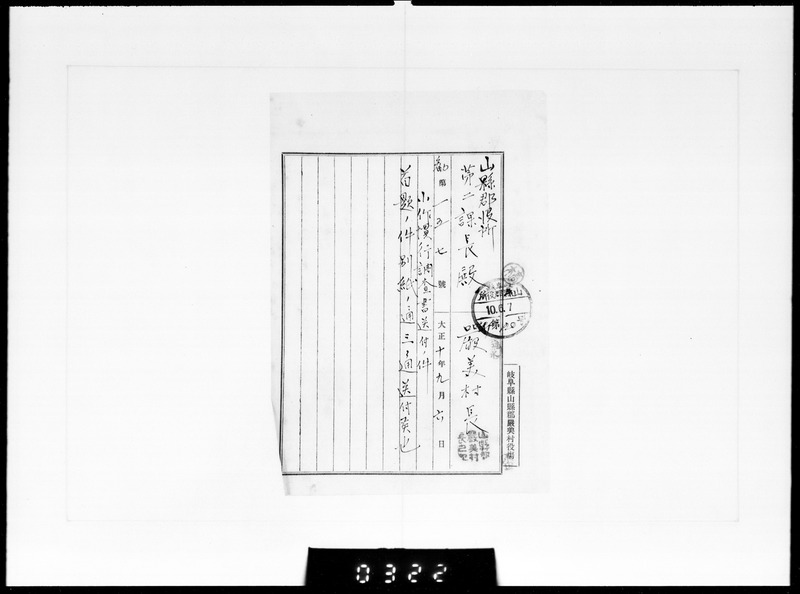 岐阜縣山縣郡嚴美村役場
山縣郡役所
第二課長殿
嚴美村長
山縣郡
嚴美村
長之印
10.6.7
勸第一五七號 大正十年九月六日
小作慣行調査書送付ノ件
首題ノ件別紙ノ通三通送付候也
0322